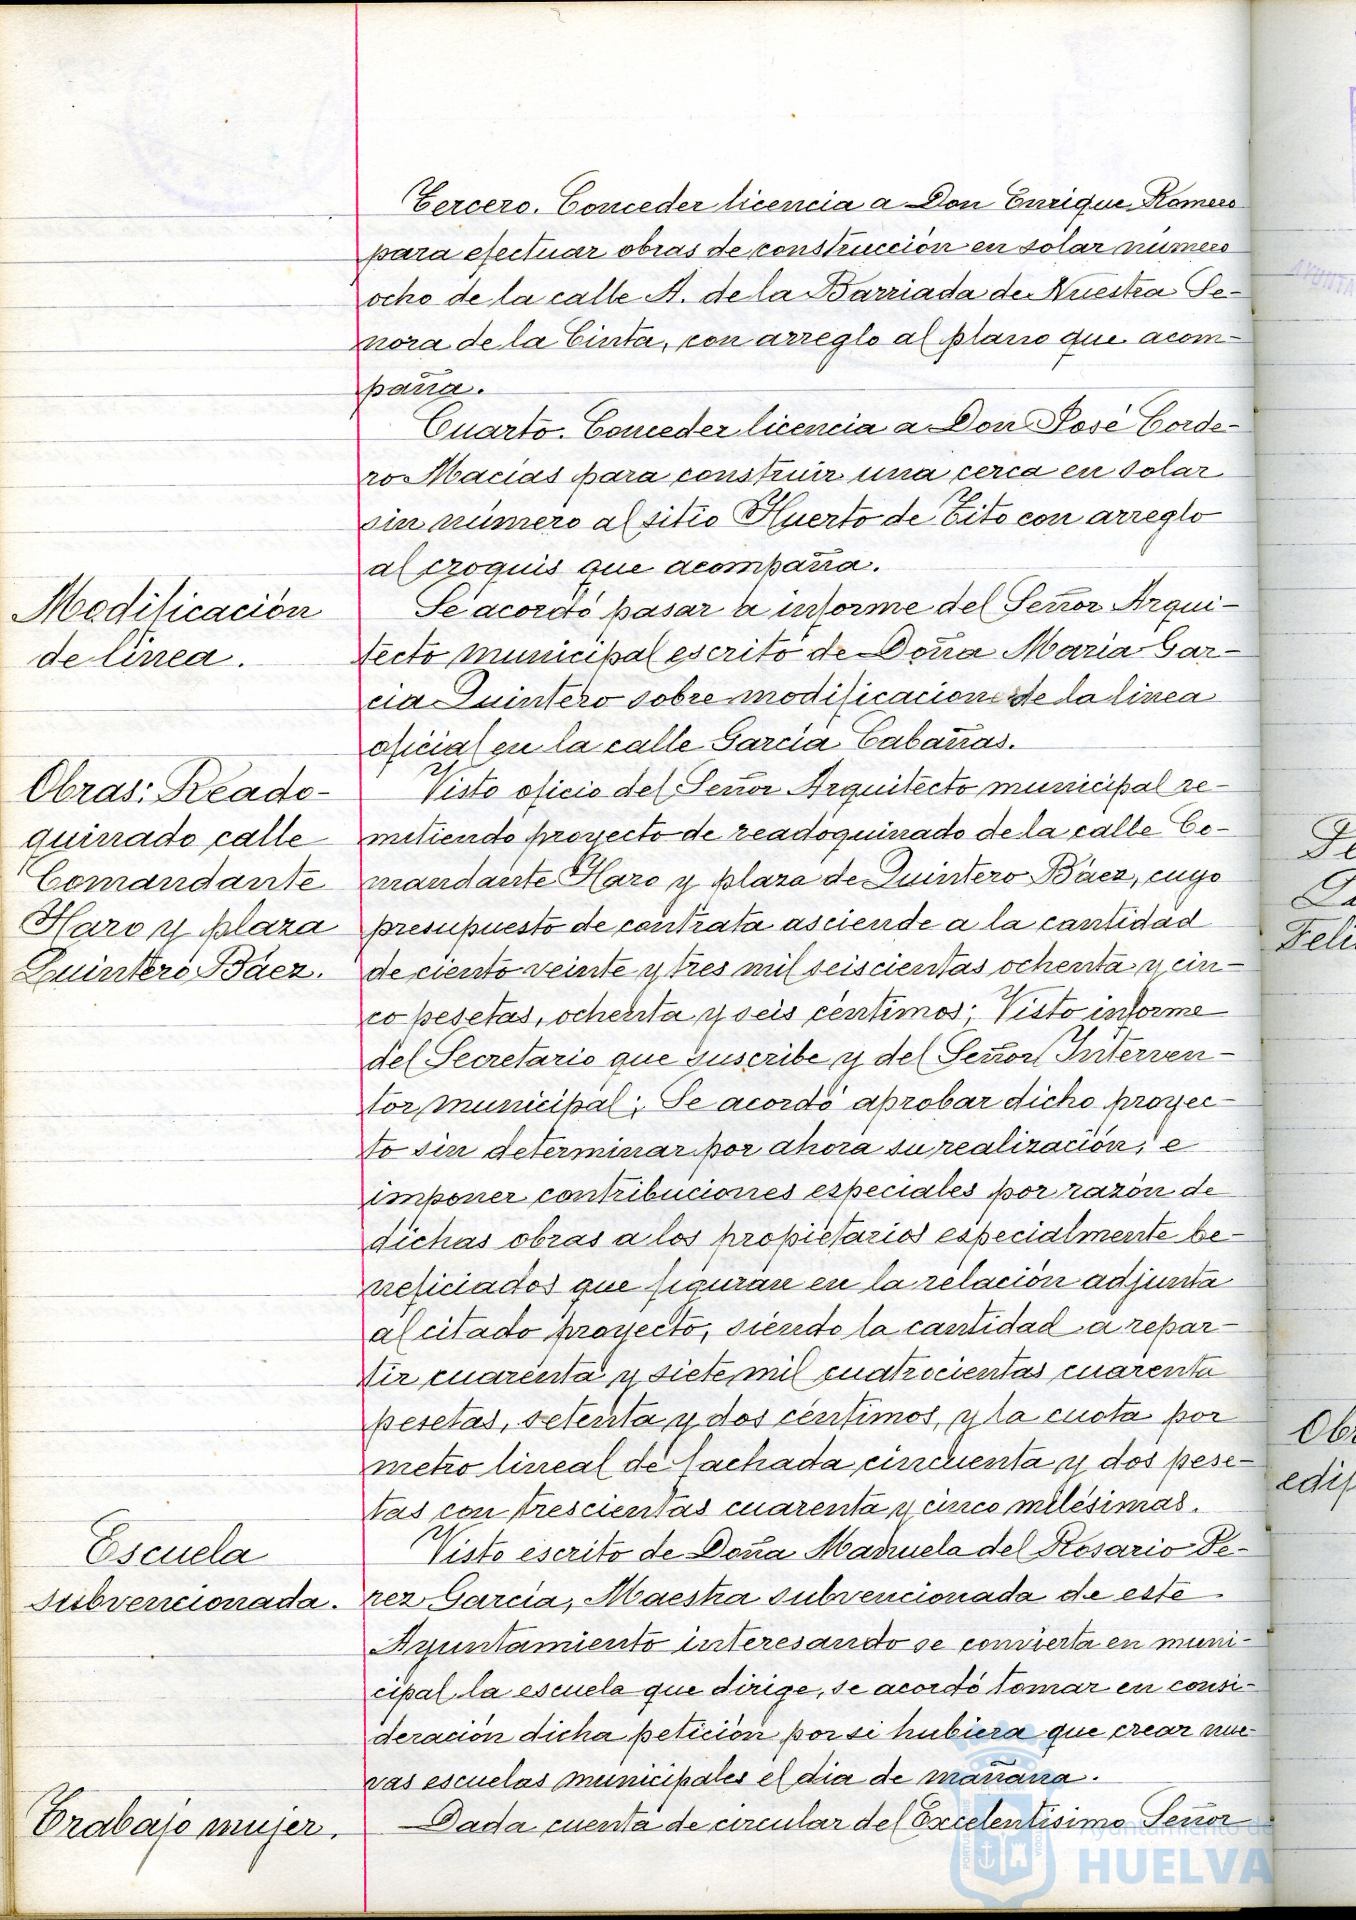 Tercero. Conceder licencia a Don Enrique Romero
para efectuar obras de construcción en solar número
ocho de la calle A. de la Barriada de Nuestra Se-
ñora de la Cinta, con arreglo al plano que acom-
paña.
Cuarto. Conceder licencia a Don José Corde-
ro Macías para construir una cerca en solar
sin número al sitio Huerto de Tito con arreglo
al croquis que acompaña.
Modificación
de línea.
Se acordó pasar a informe del Señor Arqui-
tecto municipal escrito de Doña María Gar-
cia Quintero sobre modificacion de la linea
oficial en la calle García Cabañas.
Obras: Reado-
quinado calle
Comandante
Haro y plaza
Quintero Báez.
Visto oficio del Señor Arquitecto municipal re-
mitiendo proyecto de readoquinado de la calle Co-
mandante Haro y plaza de Quintero Báez, cuyo
presupuesto de contrata asciende a la cantidad
de ciento veinte y tres mil seiscientas ochenta y cin-
co pesetas, ochenta y seis céntimos; Visto informe
del Secretario que suscribe y del Señor Interven-
tor municipal; Se acordó aprobar dicho proyec-
to sin determinar por ahora su realización, e
imponer contribuciones especiales por razón de
dichas obras a los propietarios especialmente be-
neficiados que figuran en la relación adjunta
al citado proyecto, siendo la cantidad a repar-
tir cuarenta y siete mil cuatrocientas cuarenta
pesetas, setenta y dos céntimos, y la cuota por
metro lineal de fachada cincuenta y dos pese-
tas con trescientas cuarenta y cinco milésimas.
Escuela
subvencionada.
Visto escrito de Doña Manuela del Rosario Pé-
rez García, Maestra subvencionada de este
Ayuntamiento interesando se convierta en muni-
cipal la escuela que dirige, se acordó tomar en consi-
deración dicha petición por si hubiera que crear nue-
vas escuelas municipales el dia de mañana.
Trabajo mujer.
Dada cuenta de circular del Excelentísimo Señor
Ayuntamiento de
HUELVA